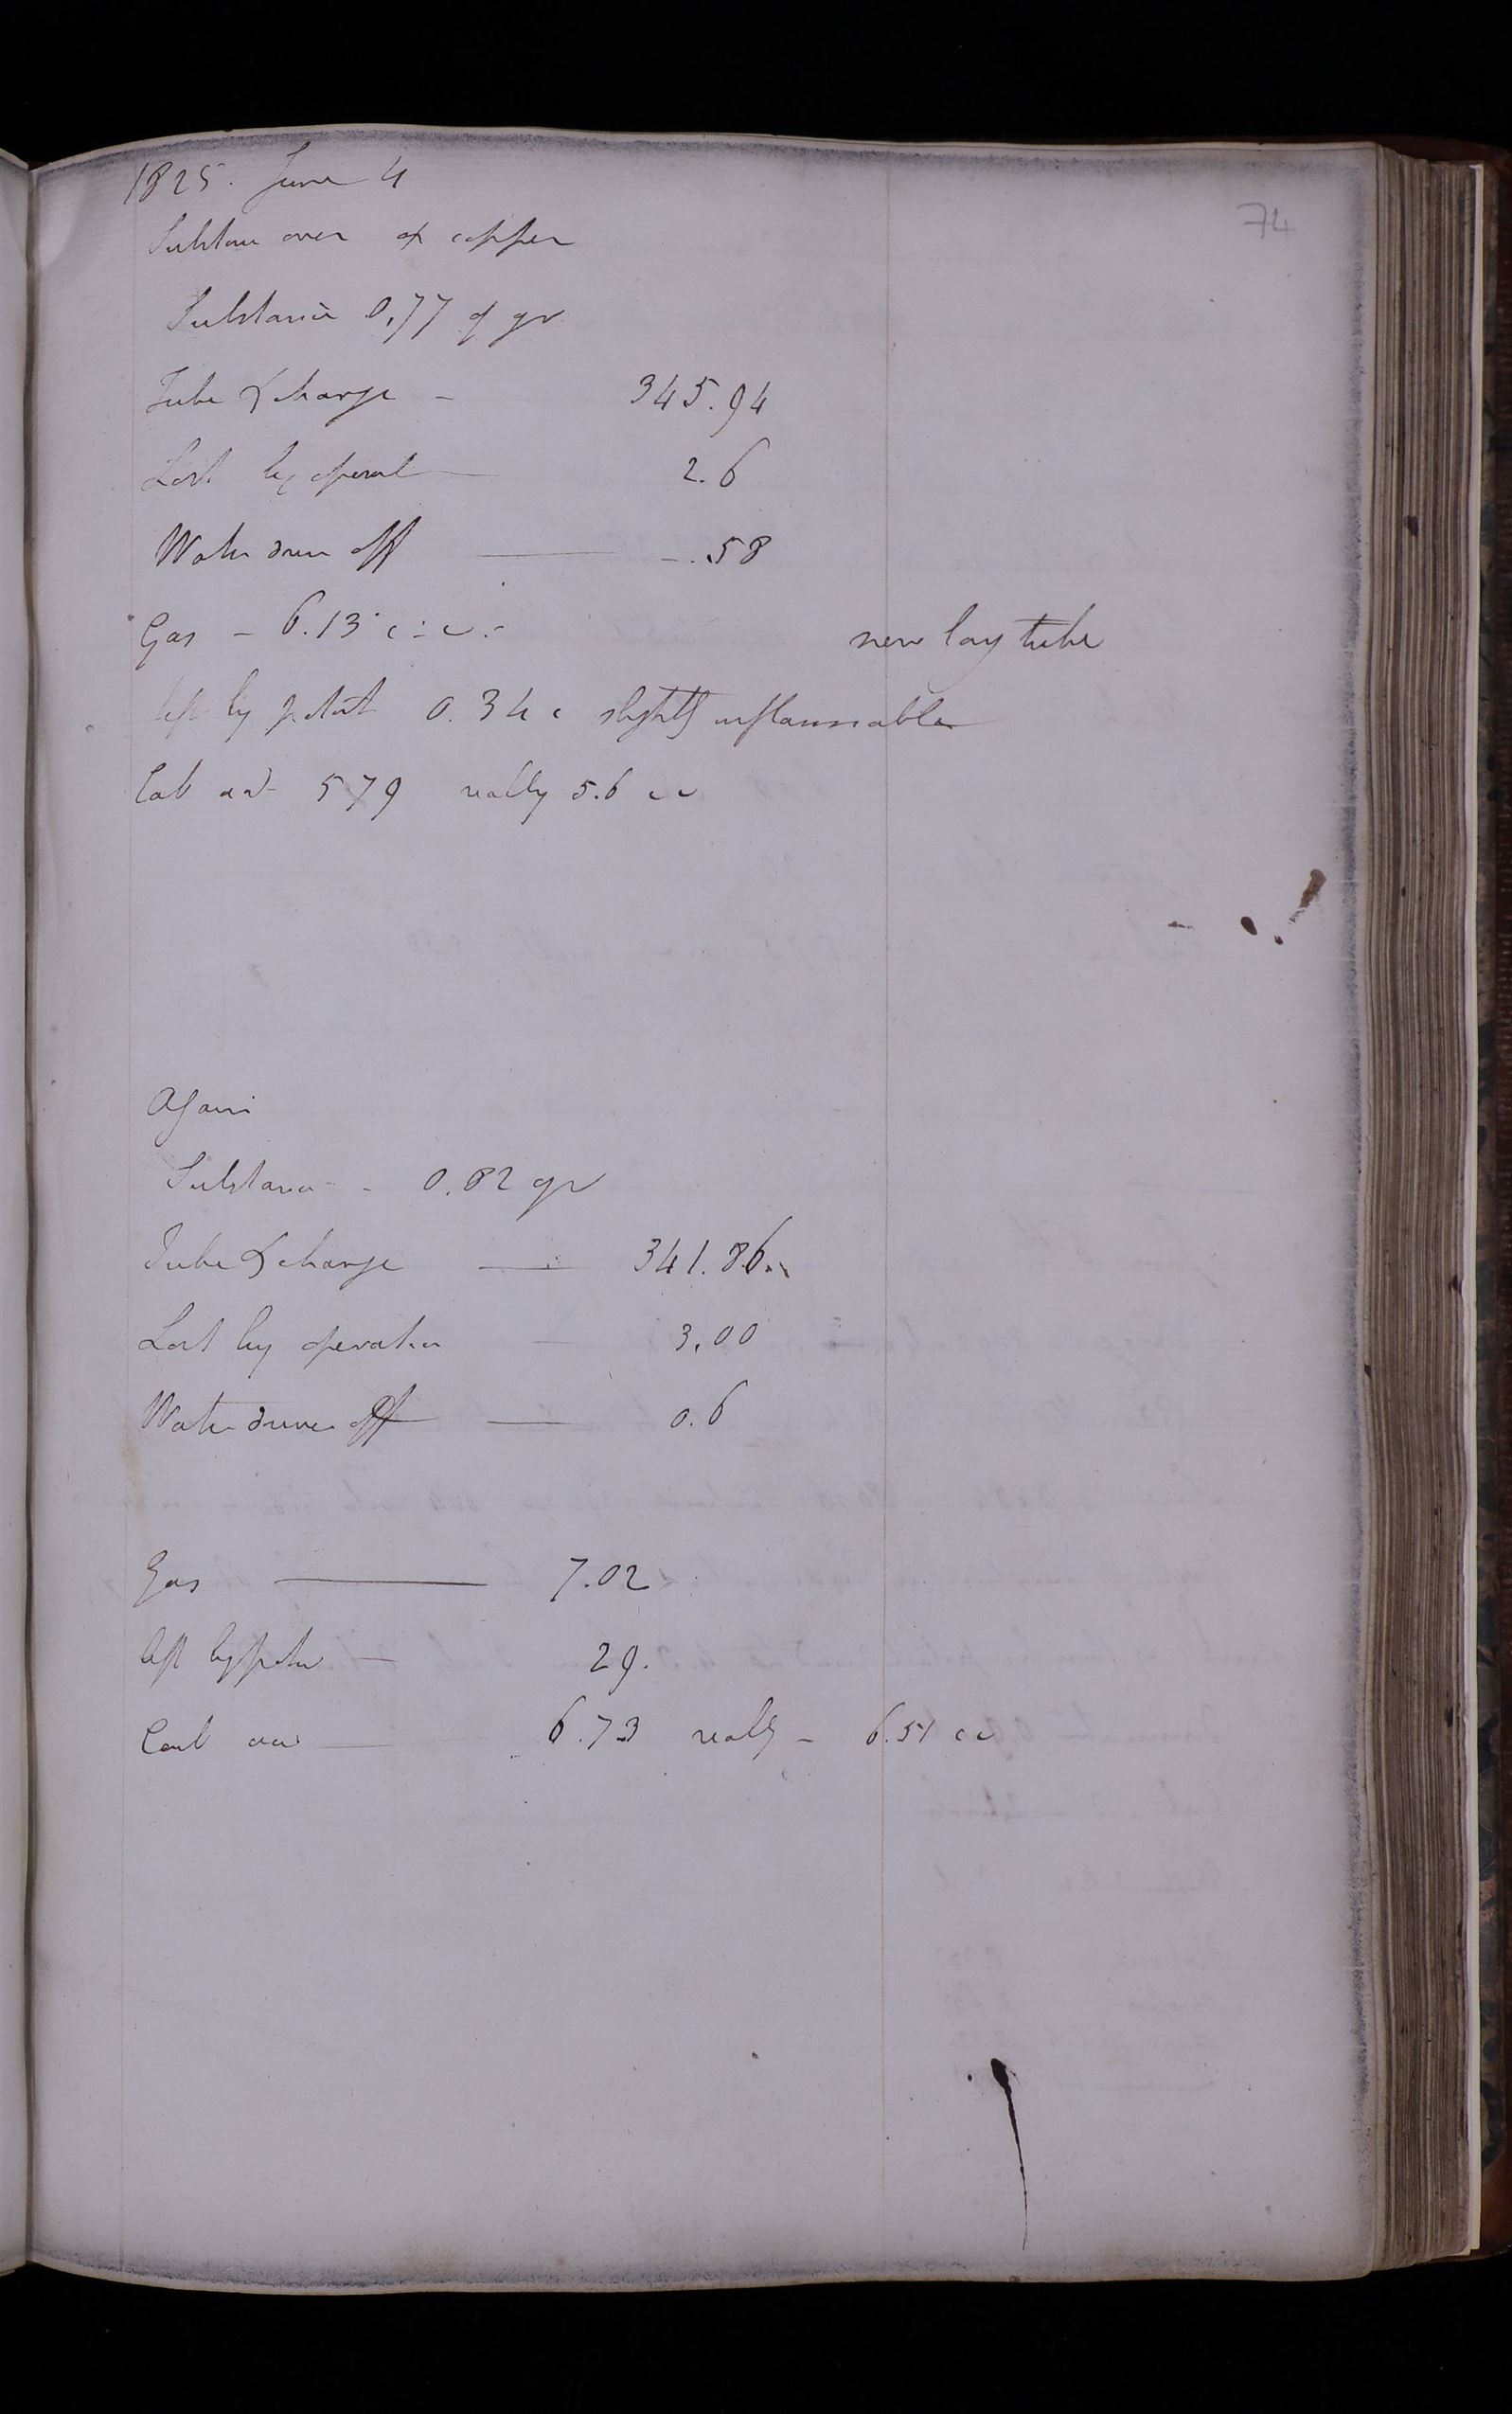 74
1825. June 4
Substance over ox copper
Substance 0.77 of gr
Tube & charge - 345.94
Lost by operat 2.6
Water driven off - .58
Gas - 6.13 c. i.
new lay tube
left by potash 0.34 c slightly inflammable
Carb acid 579 really 5.6 cc
Again
Substance - 0.82 gr
Tube & charge 341.86
Lost by operation 3.00
Water driven off 0.6
Gas 7.02
left by potash 29.
Carb acid 6.73 really - 6.51 cc